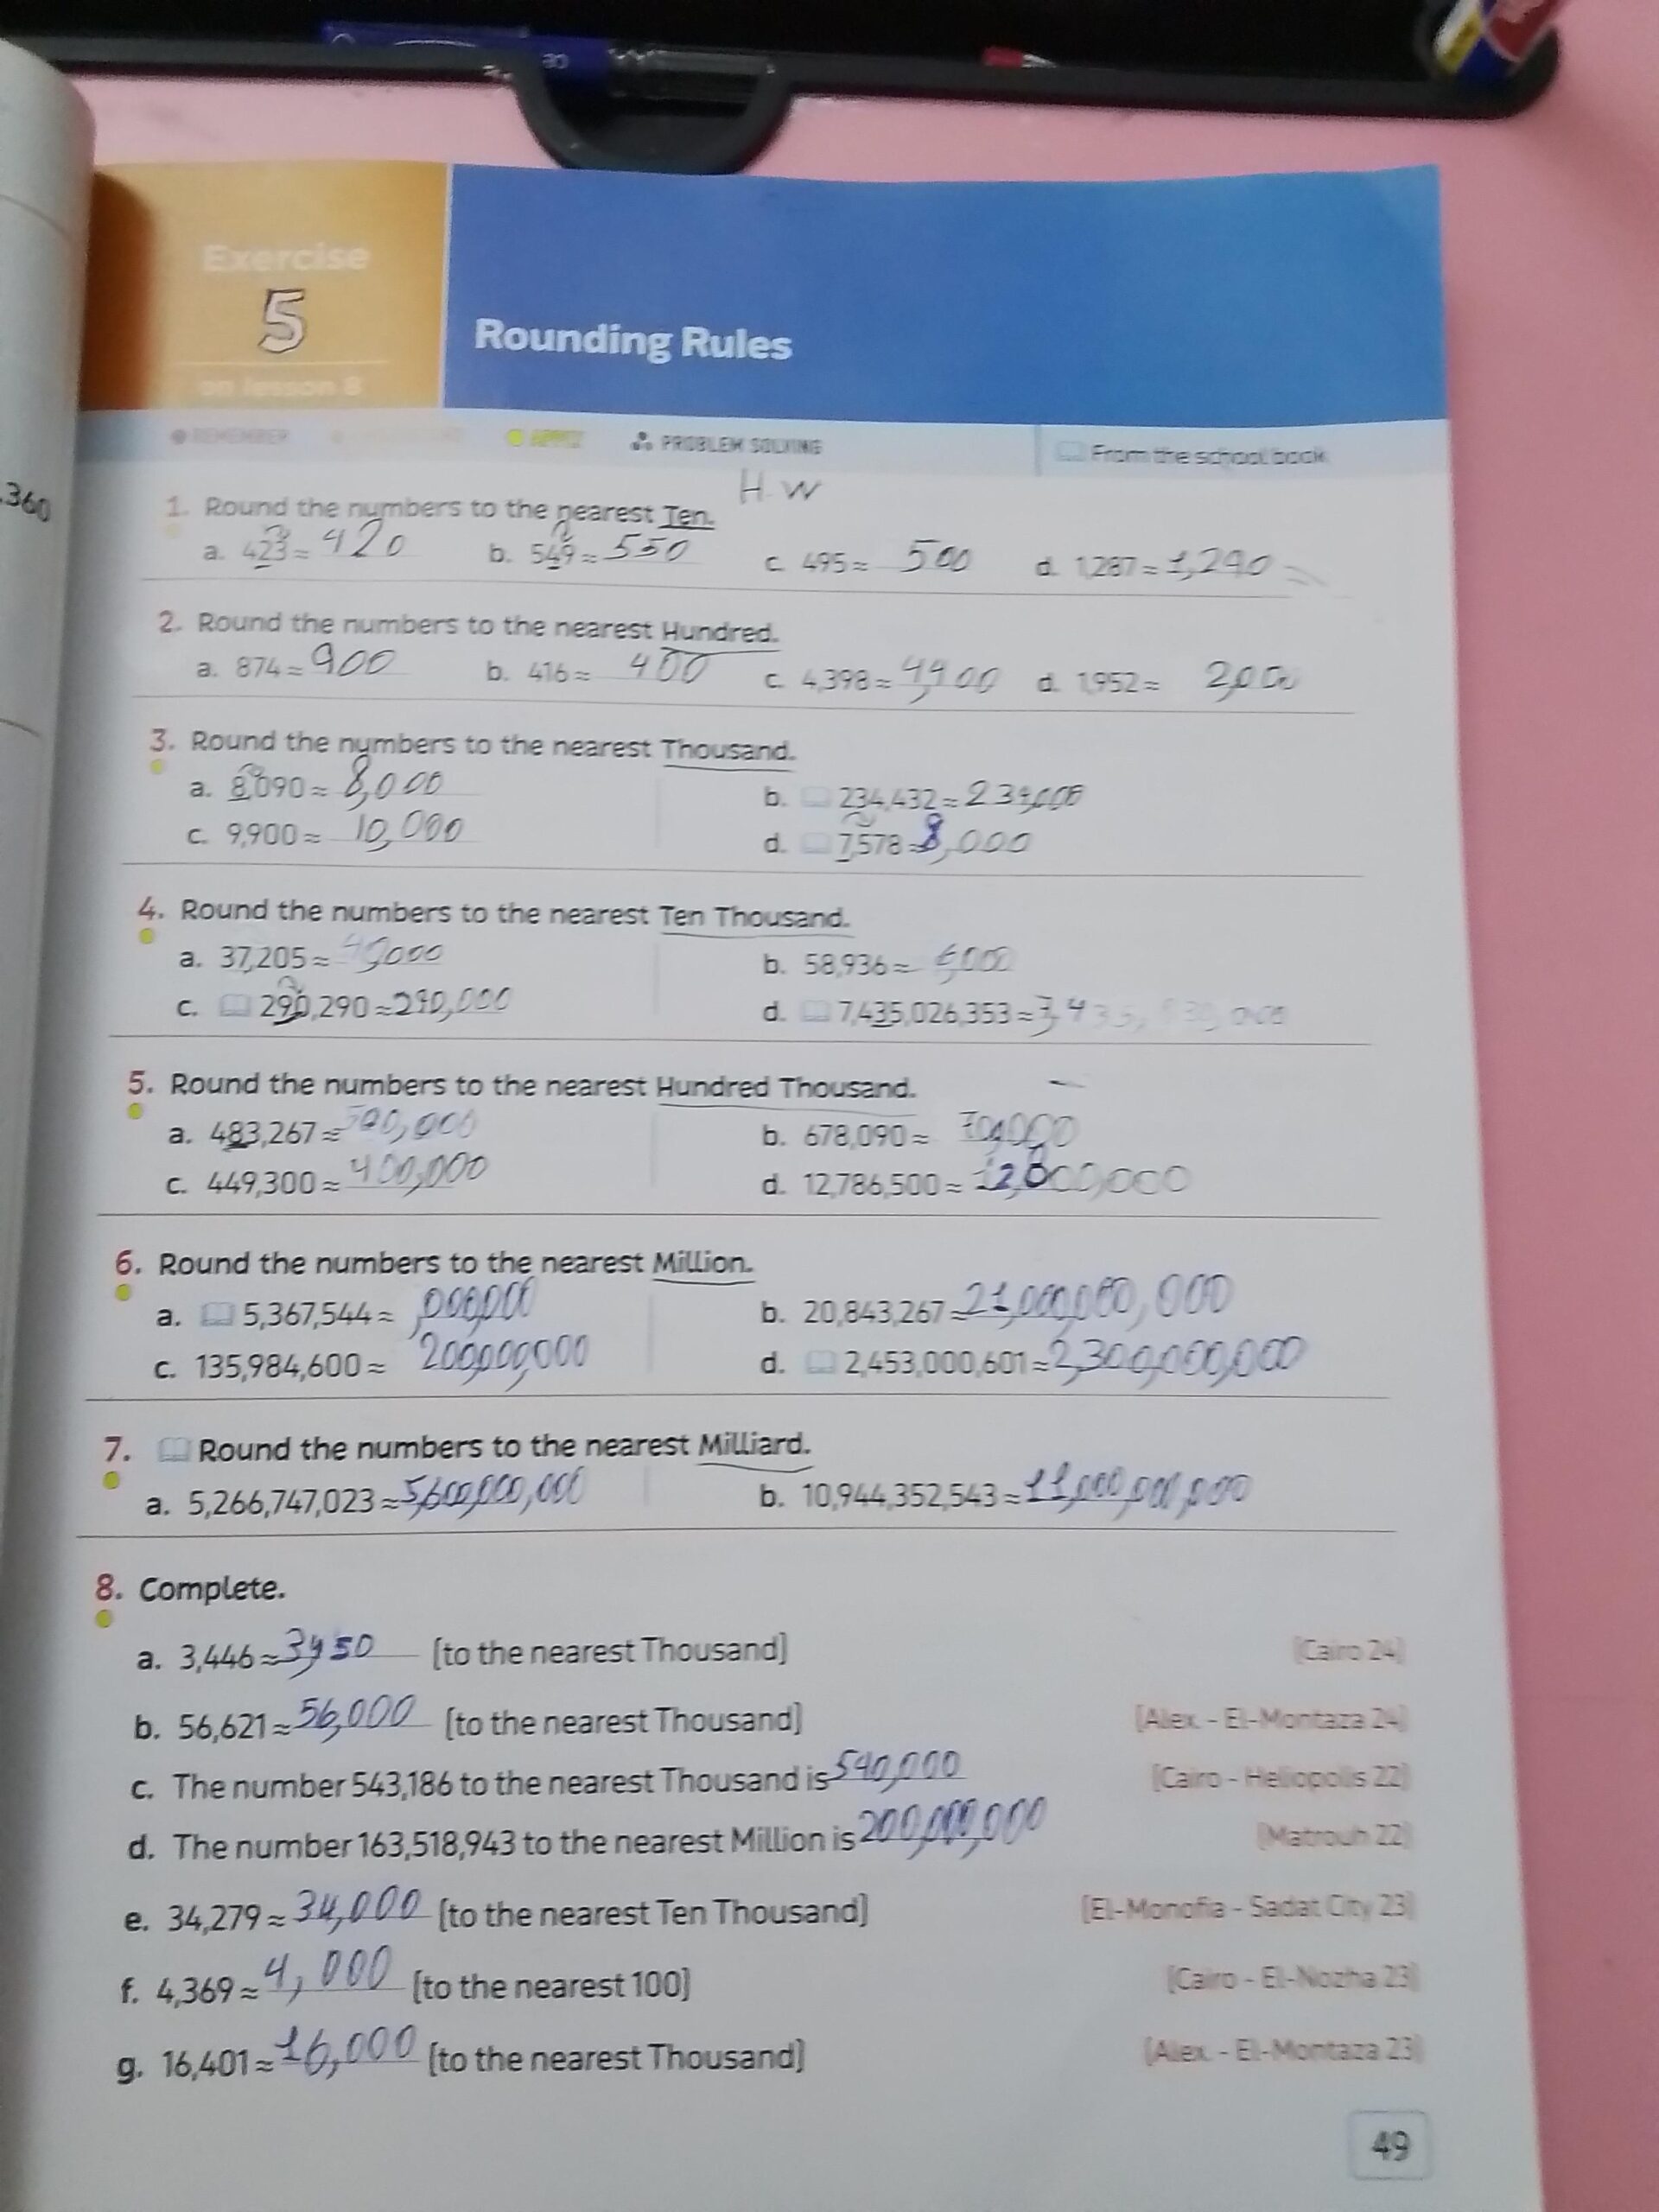 360
Exercise
5
on lesson 8
Rounding Rules
REMEMBER APPLY PROBLEM SOLVING From the school book
H.W
1. Round the numbers to the nearest Ten.
a. 423 ≈ 420 b. 549 ≈ 550 c. 495 ≈ 500 d. 1,287 ≈ 1,290
2. Round the numbers to the nearest Hundred.
a. 874 ≈ 900 b. 416 ≈ 400 c. 4,398 ≈ 4,400 d. 1,952 ≈ 2,000
3. Round the numbers to the nearest Thousand.
a. 8,090 ≈ 8,000 b. 234,432 ≈ 234,000
c. 9,900 ≈ 10,000 d. 7,578 ≈ 8,000
4. Round the numbers to the nearest Ten Thousand.
a. 37,205 ≈ b. 58,936 ≈
c. 290,290 ≈ 290,000 d. 7,435,026,353 ≈
5. Round the numbers to the nearest Hundred Thousand.
a. 483,267 ≈ 500,000 b. 678,090 ≈
c. 449,300 ≈ 400,000 d. 12,786,500 ≈ 12,800,000
6. Round the numbers to the nearest Million.
a. 5,367,544 ≈ ,000,000 b. 20,843,267 ≈ 21,000,000,000
c. 135,984,600 ≈ 200,000,000 d. 2,453,000,601 ≈ 2,300,000,000
7. Round the numbers to the nearest Milliard.
a. 5,266,747,023 ≈ 5,600,000,000 b. 10,944,352,543 ≈ 11,000,000,000
8. Complete.
a. 3,446 ≈ 3,450 [to the nearest Thousand] [Cairo 24]
b. 56,621 ≈ 56,000 [to the nearest Thousand] [Alex. - El-Montaza 24]
c. The number 543,186 to the nearest Thousand is 540,000 [Cairo - Heliopolis 22]
d. The number 163,518,943 to the nearest Million is 200,000,000 [Matrouh 22]
e. 34,279 ≈ 34,000 [to the nearest Ten Thousand] [El-Monofia - Sadat City 23]
f. 4,369 ≈ 4,000 [to the nearest 100] [Cairo - El-Nozha 23]
g. 16,401 ≈ 16,000 [to the nearest Thousand] [Alex. - El-Montaza 23]
49